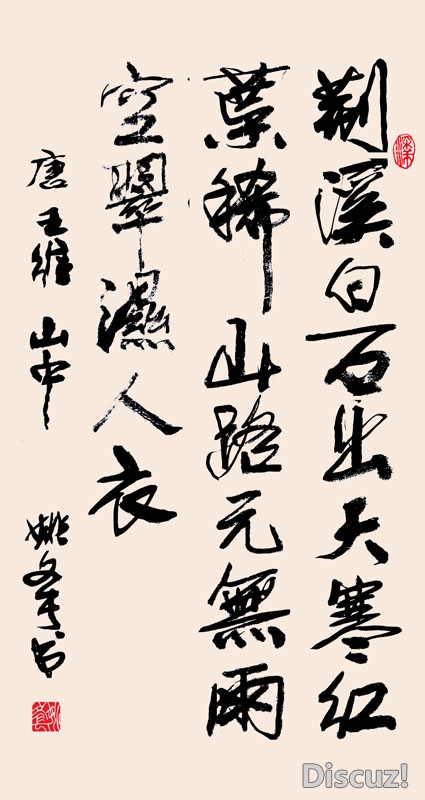 荆溪白石出天寒红
葉稀山路元無雨
空翠濕人衣
唐王維山中
書
Discuz!